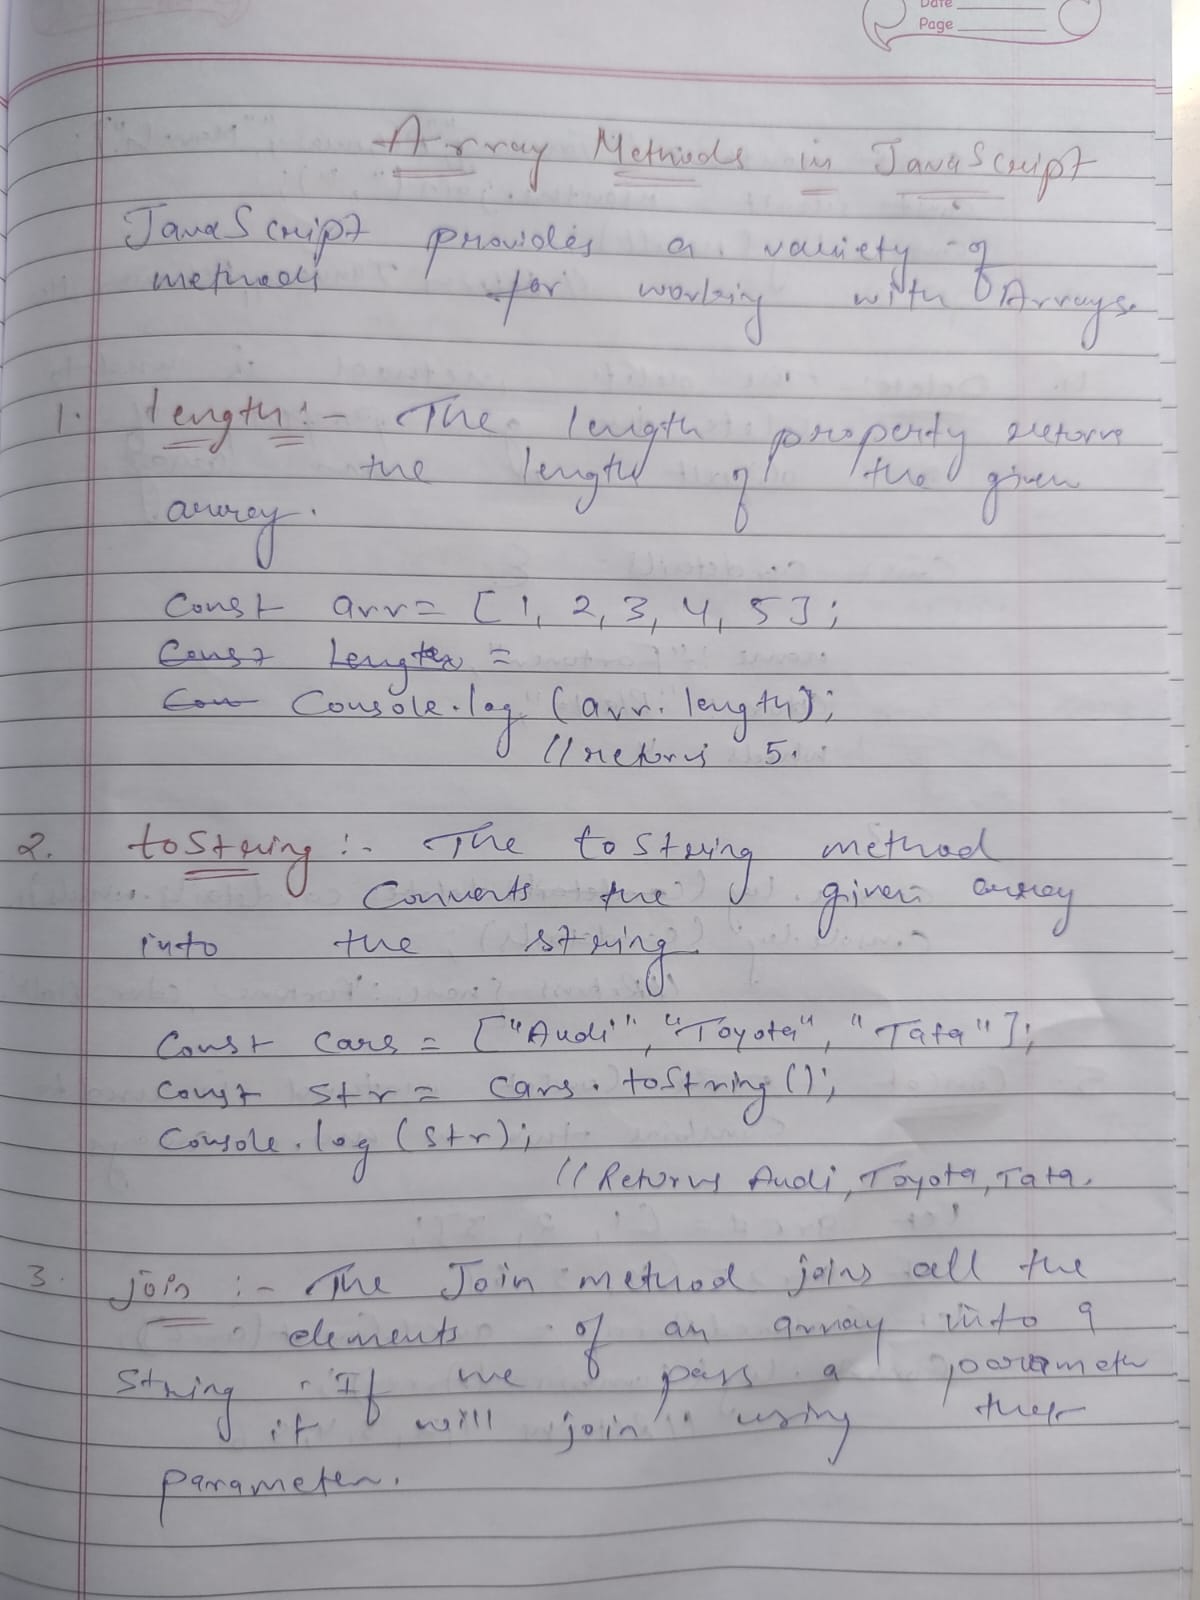 Date
Page
Array Methods in JavaScript
JavaScript provides a variety of
methods for working with Arrays.
1. length :- The length property returns
the length of the given
array.
Const arr = [1, 2, 3, 4, 5];
Const Length =
Con Console.log (arr.length);
//returns 5.
2. toString :- The toString method
Converts the given array
into the string.
Const cars = ["Audi", "Toyota", "Tata"];
Const str = cars.toString();
Console.log (str);
//Returns Audi, Toyota, Tata.
3. join :- The Join method joins all the
elements of an array into a
string. If we pass a parameter
it will join using that
parameter.